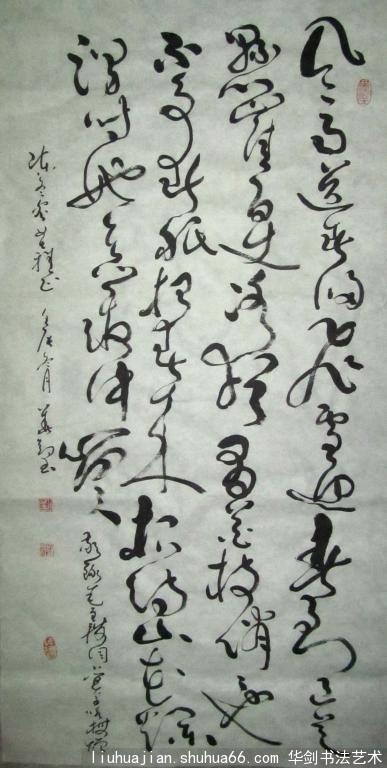 风雨送春归飞雪迎春到已是
悬崖百丈冰犹有花枝俏俏也
不争春只把春来报待到山花烂
漫时她在丛中笑
敬录毛主席词卜算子咏梅
壬辰冬月 华剑书
liuhuajian.shuhua66.com 华剑书法艺术